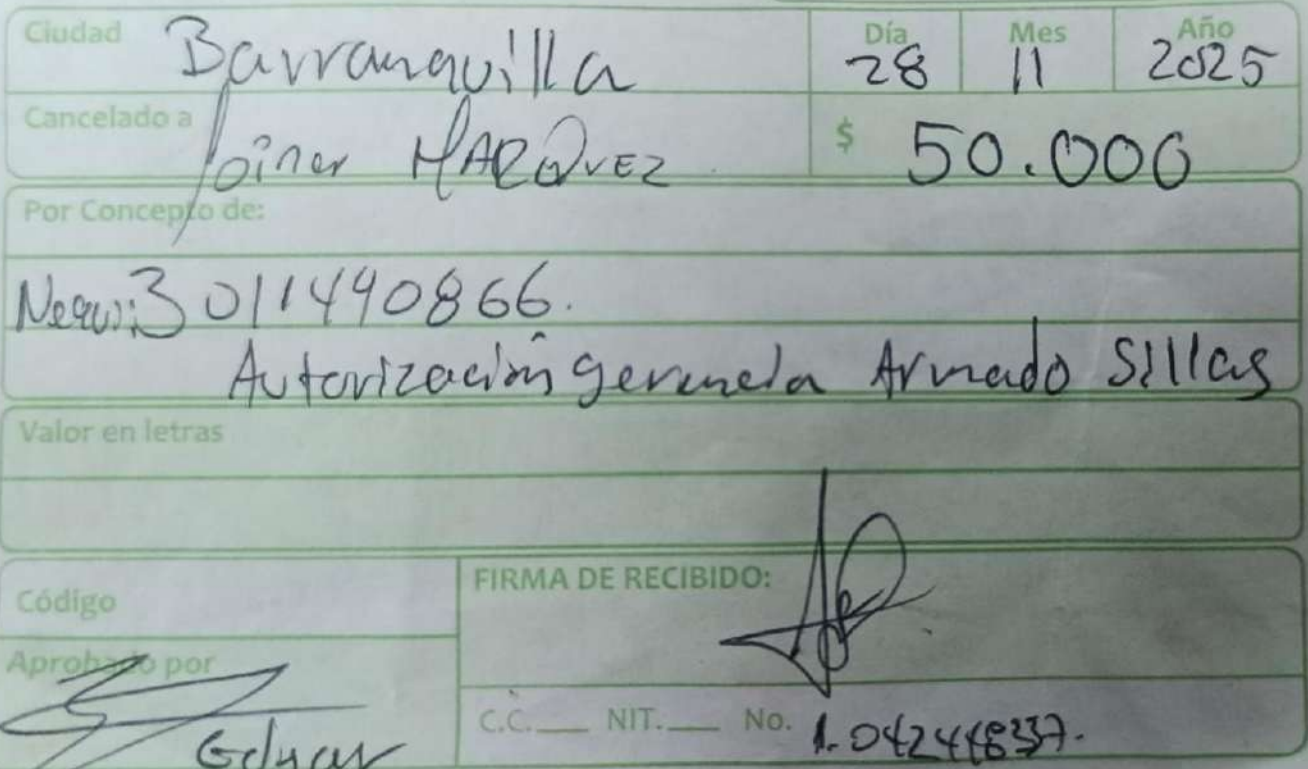 Ciudad Barranquilla Día 28 Mes 11 Año 2025
Cancelado a Joiner MARQUEZ $ 50.000
Por Concepto de:
Nequi: 3011440866.
Autorización gerencia Armado Sillas
Valor en letras
Código
FIRMA DE RECIBIDO:
Aprobado por
C.C. NIT. No.